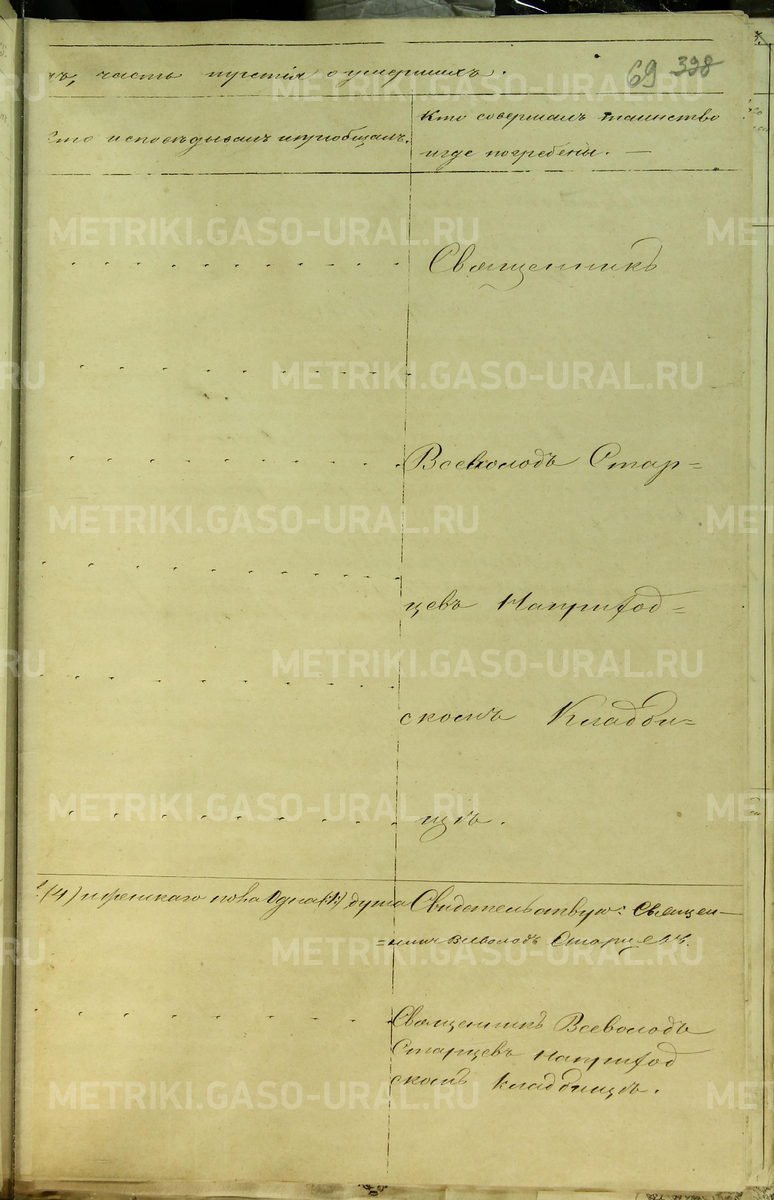 часть третія о умершихъ.
69 398
Кто исповѣдывалъ и пріобщалъ.
Кто совершалъ таинство
и гдѣ погребены.
Священникъ
Всеволодъ Стар=
цевъ На приход=
скомъ Кладби=
щѣ.
(4) и женскаго пола Одна (1) душа
Свидѣтельствую: Священ-
=никъ Всеволодъ Старцевъ.
Священникъ Всеволодъ
Старцевъ на приход
скомъ кладбищѣ.
METRIKI.GASO-URAL.RU